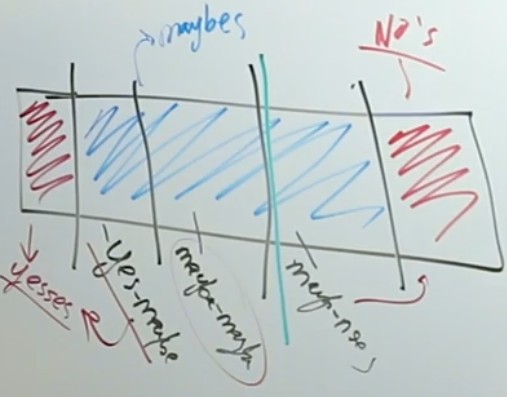 maybes
No's
yesses
yes-maybe
maybe-maybe
mayb-noes